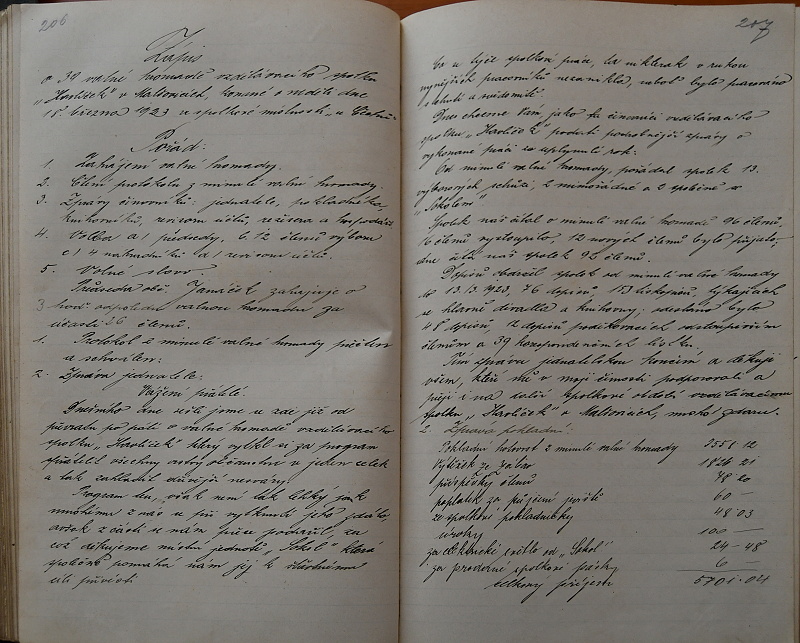 206
Zápis
o 39 valné hromadě vzdělávacího spolku
„Havlíček" v Malšovicích, konané v neděli dne
18 března 1923 ve spolkové místnosti „u
Pořad:
1. Zahájení valné hromady.
2. Čtení protokolu z minulé valné hromady.
3. Zprávy činovníků: jednatele, pokladníka,
knihovníka, revisorů účtů, režisera a hospodáře
4. Volba a) předsedy, b) 12 členů výboru
c) 4 náhradníků d) revisorů účtů.
5. Volné slovo.
Předseda Janáček zahajuje o
3 hod. odpoledne valnou hromadu za
účasti 36 členů.
1. Protokol z minulé valné hromady přečten
a schválen:
2. Zpráva jednatele:
Vážení přátelé.
Dnešního dne sešli jsme se zde již od
po páté o valné hromadě vzdělávacího
spolku „Havlíček" který vytkl si za program
všechny v jeden celek
a tak
Program ten, však není tak lehký jak
mnohému z nás se při vytknutí jeho zdálo,
avšak z části se nám přece podařil, za
což děkujeme místní jednotě „Sokol" která
společně pomáhá nám jej k
cíli přivésti.
207
spolkové práce, v rukou
nynějších pracovníků nezanikla, neboť bylo pracováno
Dnes chceme Vám, jako činovníci vzdělávacího
spolku „Havlíček" podati podrobnější zprávy o
vykonané práci za uplynulý rok:
Od minulé valné hromady, pořádal spolek 13.
výborových schůzí, 2 mimořádné a 2 společné se
„Sokolem"
Spolek náš čítal o minulé valné hromadě 96 členů,
16 členů vystoupilo, 12 nových členů bylo přijato,
dnes čítá náš spolek 92 členů.
Dopisů obdržel spolek od minulé valné hromady
do 13./3 1923, 76 dopisů, tiskopisů, týkajících
se hlavně divadla a knihovny; odesláno bylo
48 dopisů, 12 dopisů děkovacích odstoupivším
členům a 39 korespondenčních lístků.
Tím zprávu jednatelskou končím a děkuji
všem, kteří mě v mojí činnosti podporovali a
přeji i na další spolkové období vzdělávacímu
spolku „Havlíček" v Malšovicích, mnoho zdaru.
2. Zpráva pokladní:
Pokladní hotovost z minulé valné hromady 3551.12
Výtěžek ze zábav 1824 21
příspěvky členů 48.20
poplatek za půjčení jeviště 60 —
ze spolkové pokladničky 48.03
úroky 100 —
za elektrické světlo od „Sokol" 24–48
za prodané spolkové pásky 6 —
Celkový příjem 5701.04